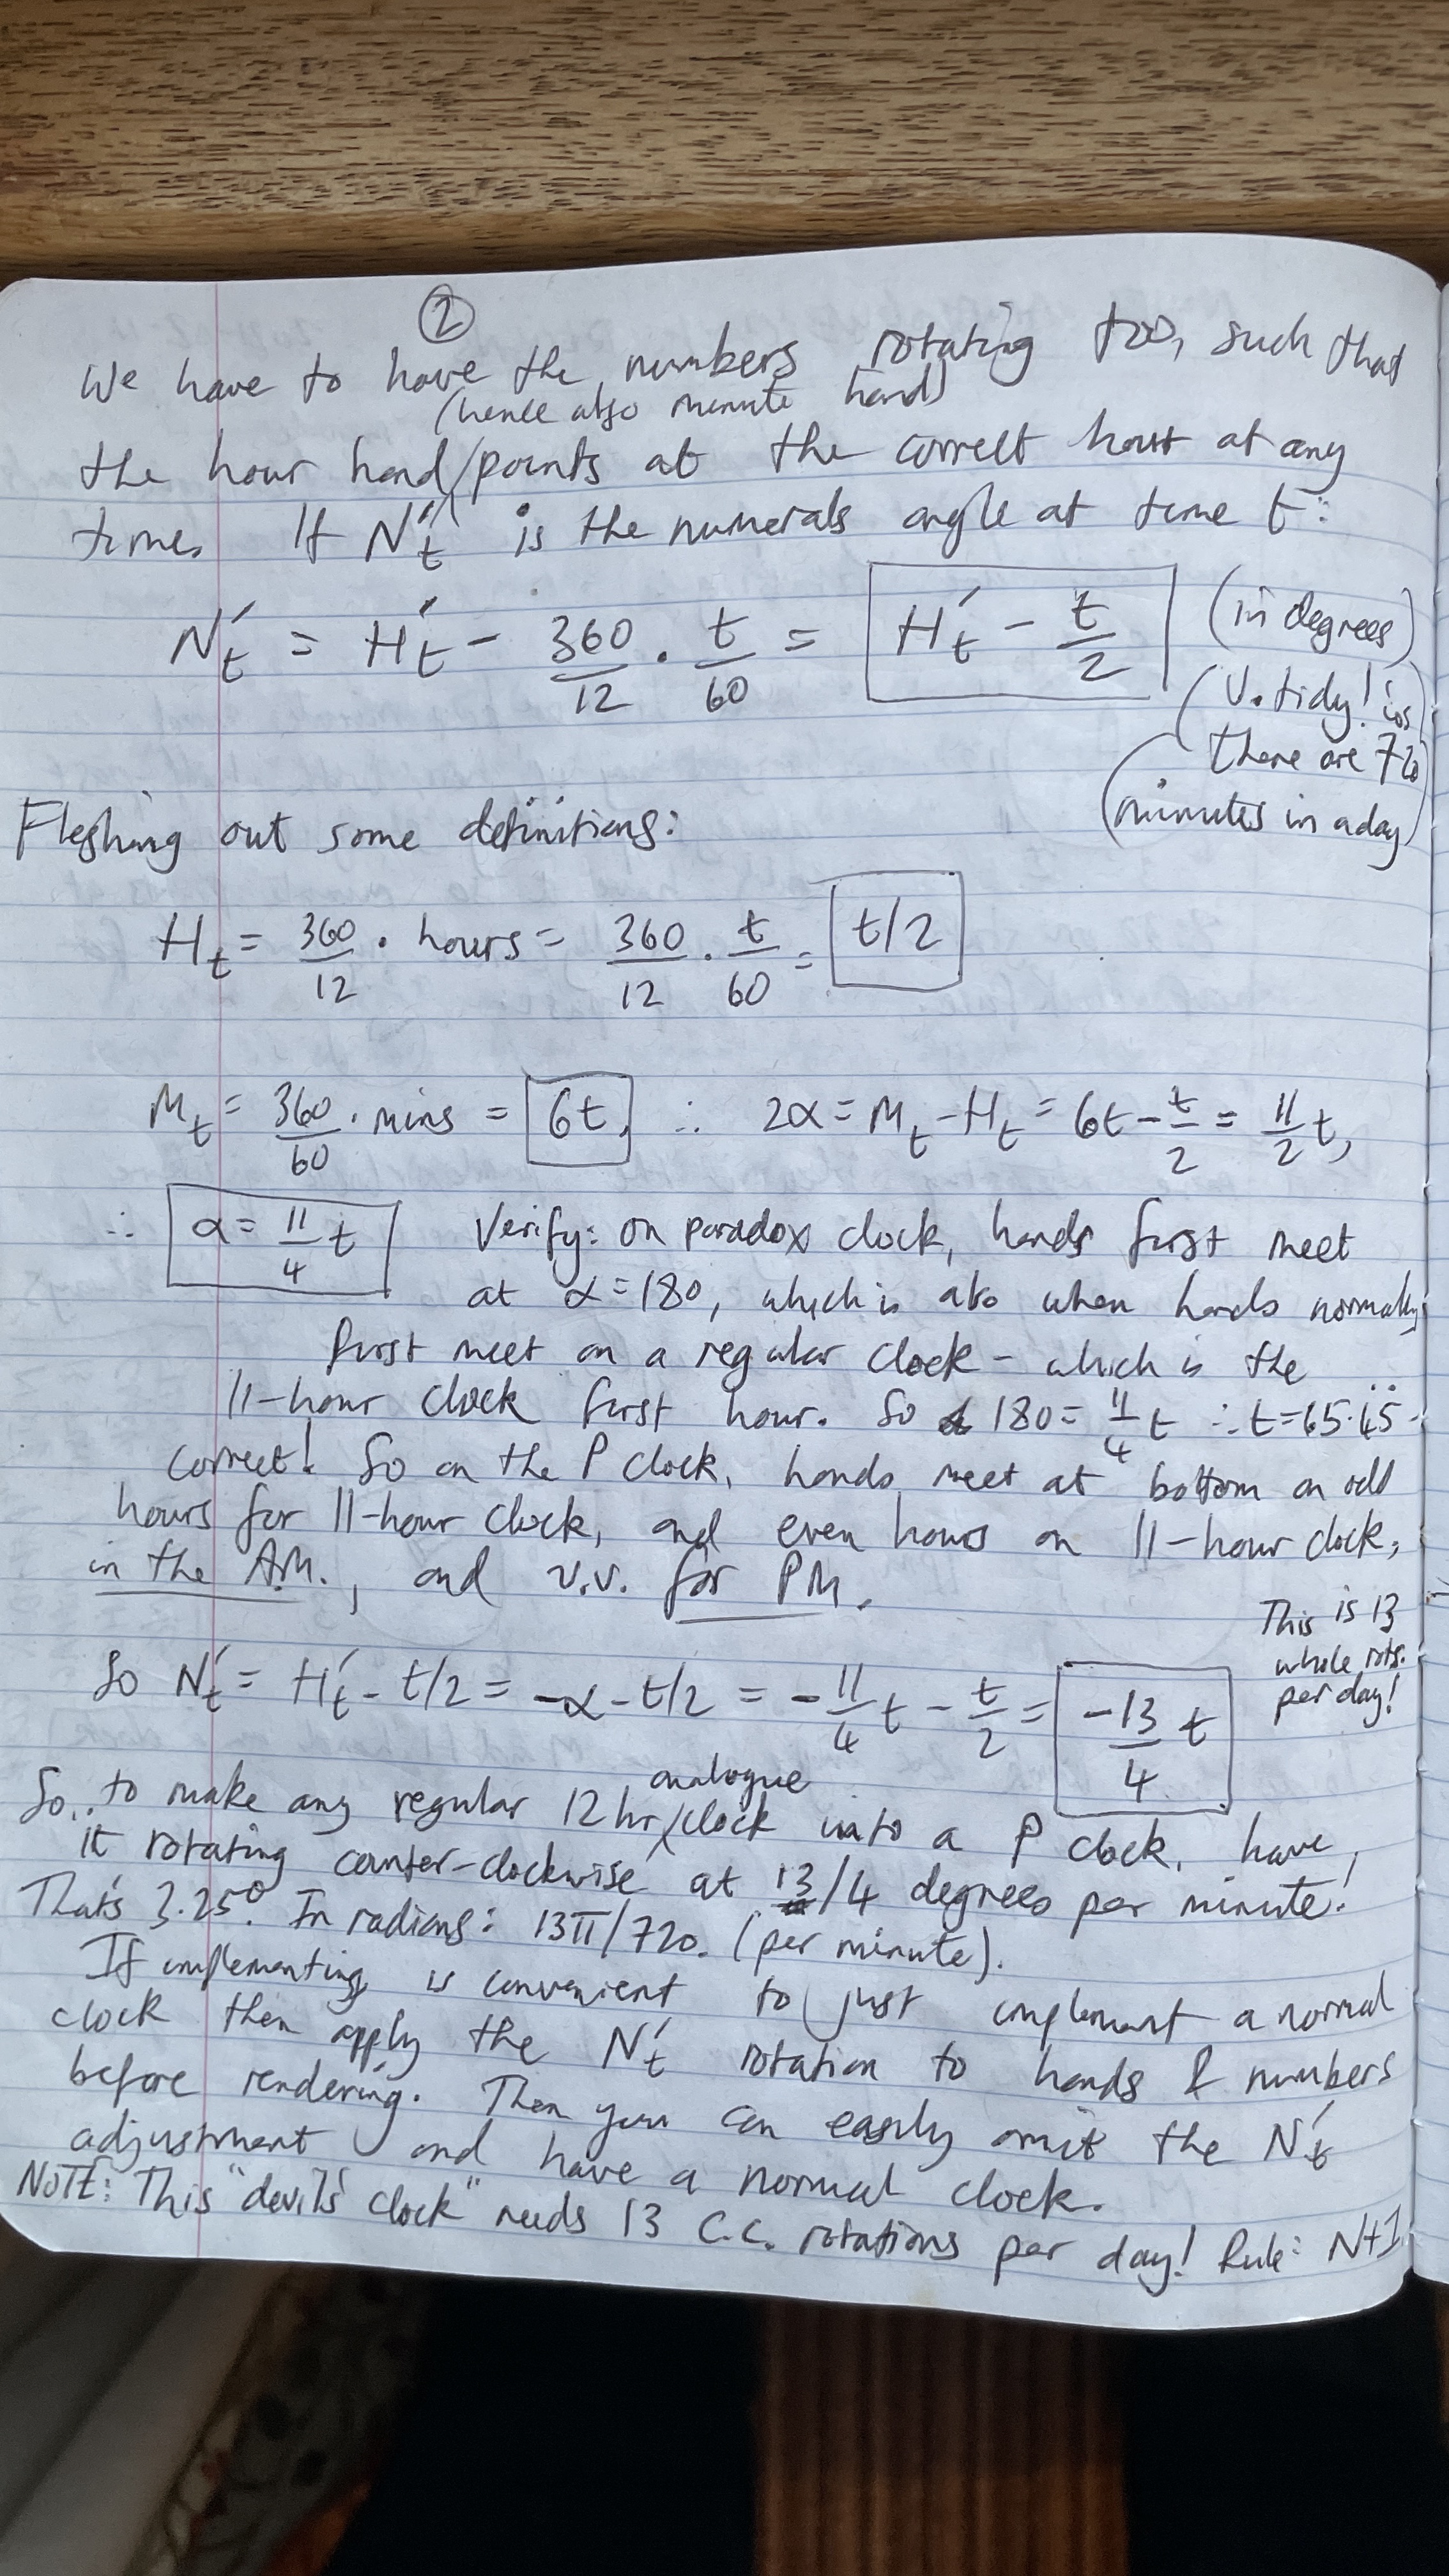 ②
We have to have the numbers rotating too, such that
(hence also minute hand)
the hour hand/points at the correct hour at any
time. If N't is the numerals angle at time t:
N't = H't - 360/12 · t/60 = H't - t/2 (in degrees)
(V. tidy! cos
there are 720
minutes in a day)
Fleshing out some definitions:
Ht = 360/12 · hours = 360/12 · t/60 = t/2
Mt = 360/60 · mins = 6t, ∴ 2α = Mt - Ht = 6t - t/2 = 11/2 t,
∴ α = 11/4 t Verify: on paradox clock, hands first meet
at α = 180, which is also when hands normally
first meet on a regular clock - which is the
11-hour clock first hour. So 180 = 11/4 t ∴ t = 65.4̇5̇ -
correct! So on the P clock, hands meet at bottom on odd
hours for 11-hour clock, and even hours on 11-hour clock,
in the A.M., and v.v. for PM.
This is 13
whole rots.
per day!
So N't = H't - t/2 = -α - t/2 = -11/4 t - t/2 = -13/4 t
So.. to make any regular 12 hr/analogue clock into a P clock, have
it rotating counter-clockwise at 13/4 degrees per minute!
That's 3.25°. In radians: 13π/720. (per minute).
If implementing is convenient to just implement a normal
clock then apply the N't rotation to hands & numbers
before rendering. Then you can easily omit the N't
adjustment and have a normal clock.
NOTE: This "devil's clock" needs 13 C.C. rotations per day! Rule: N+1